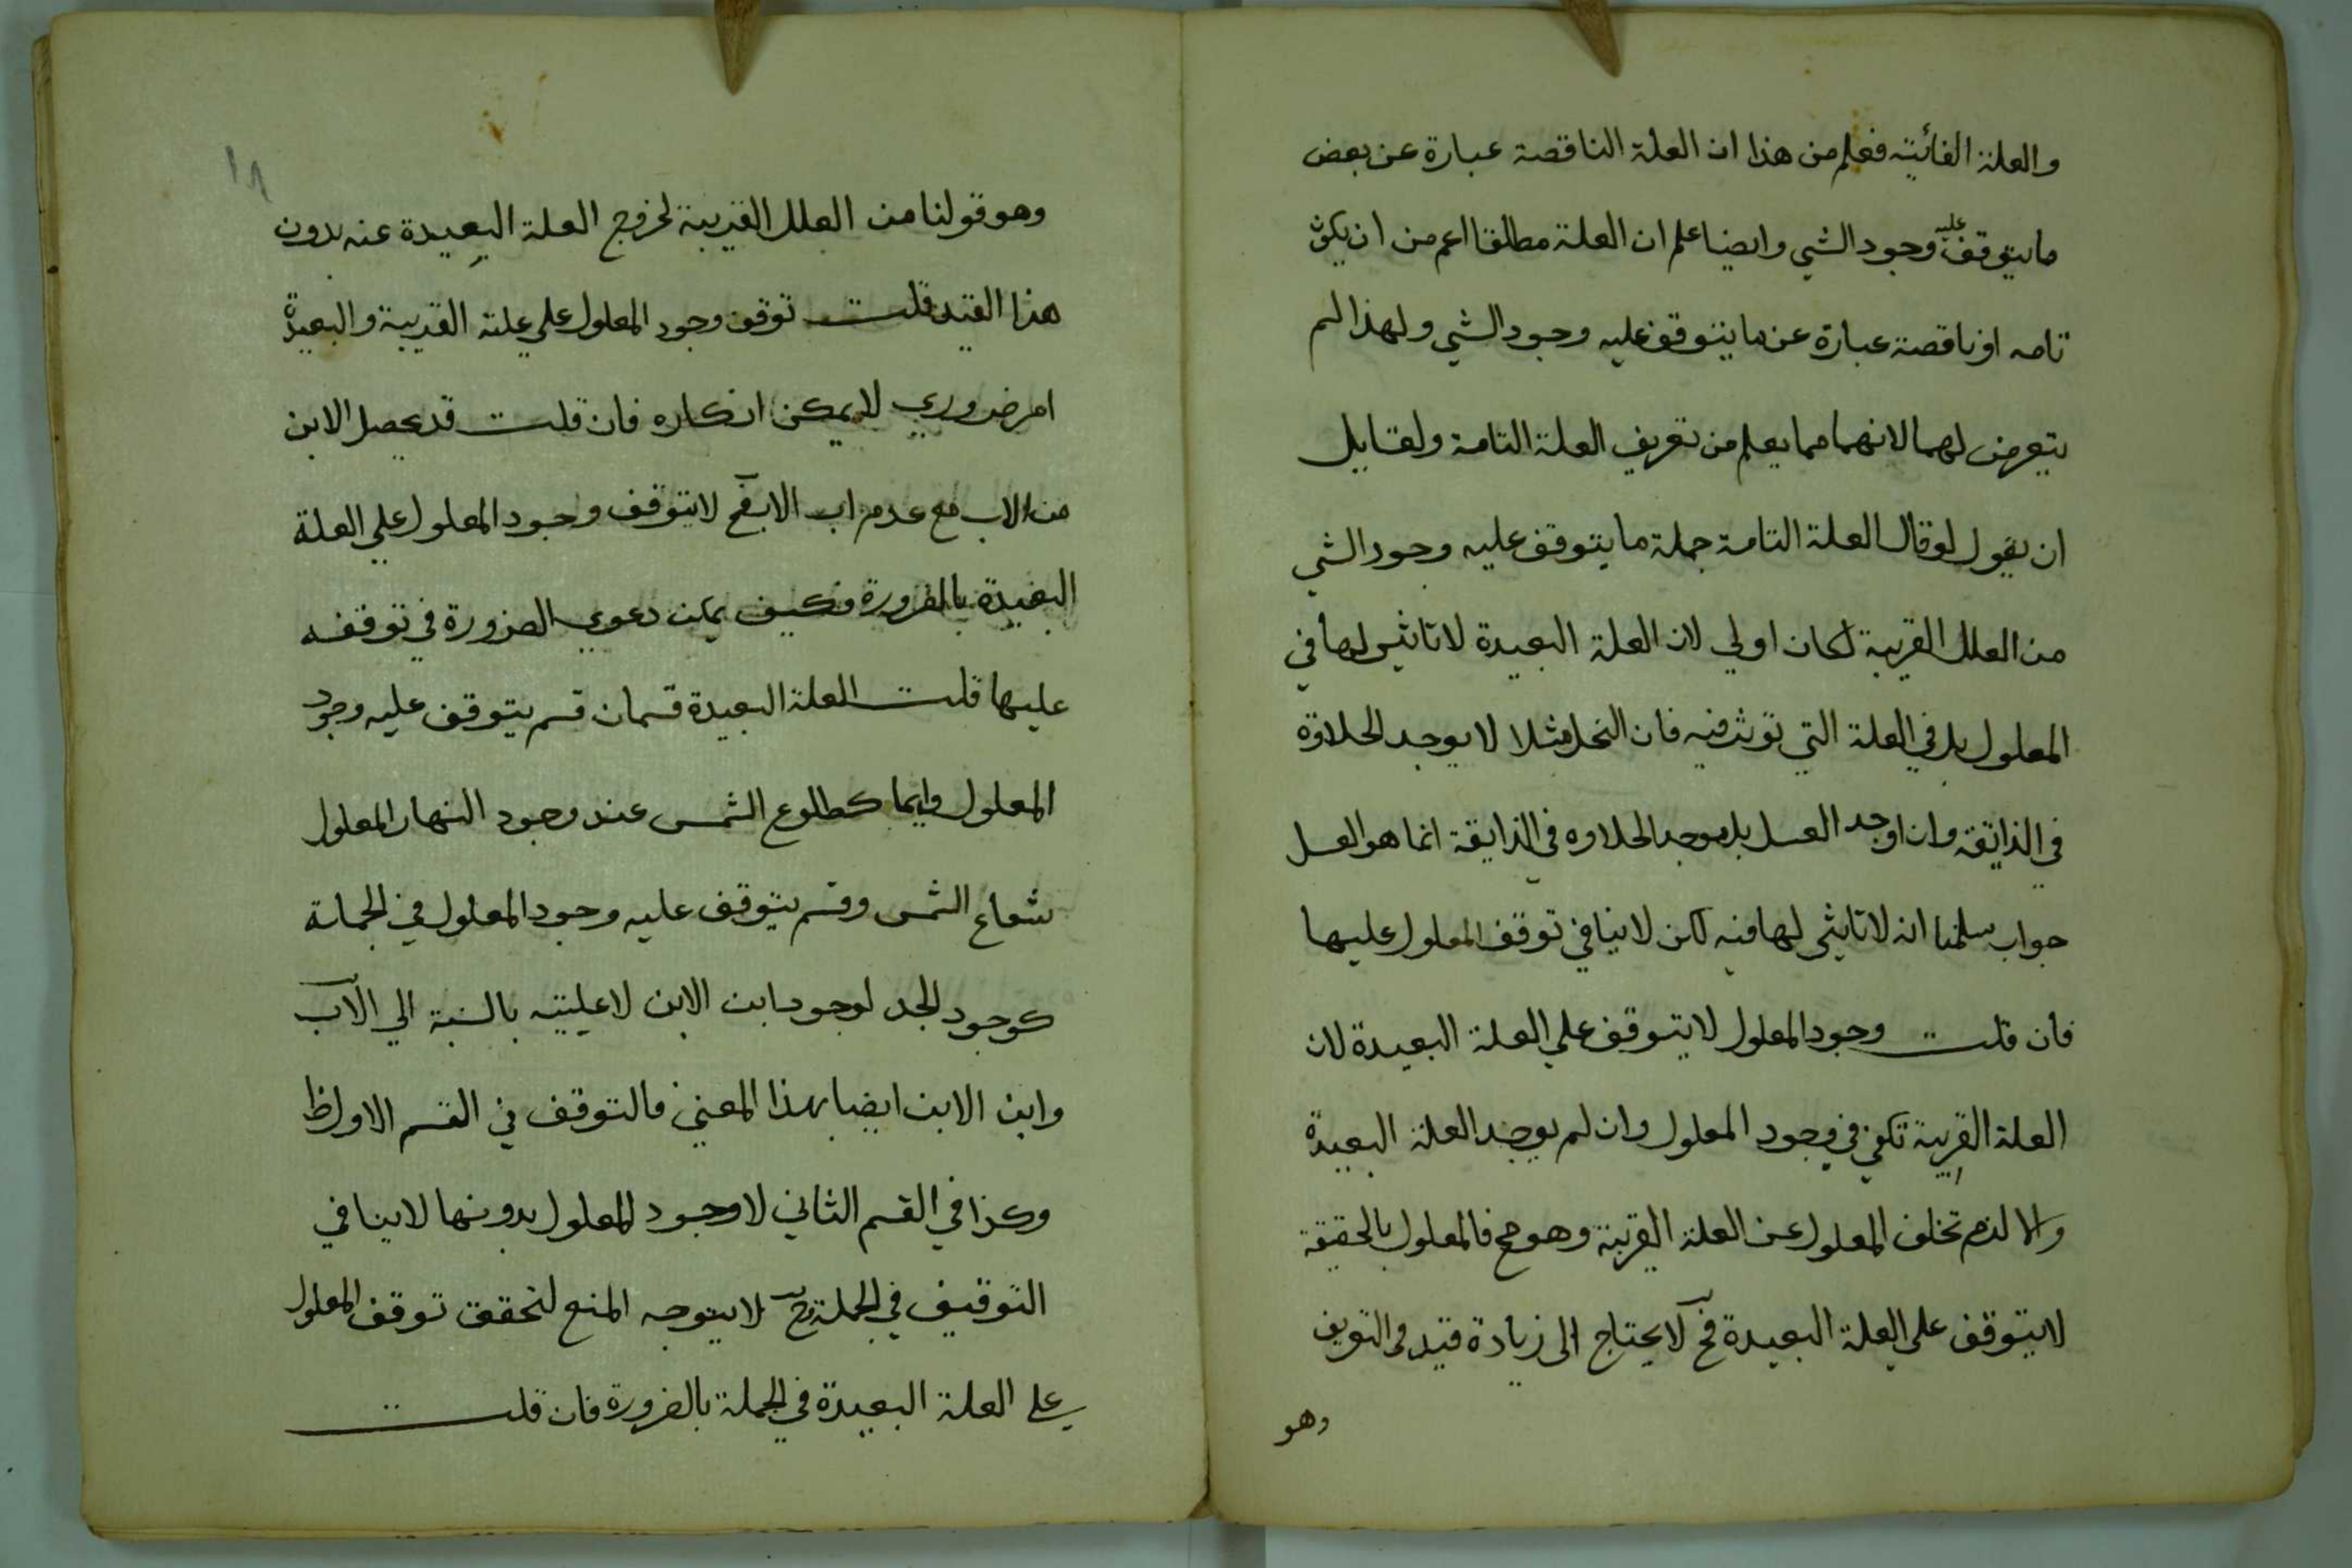 والعلة الغائية فعلم من هذا ان العلة الناقصة عبارة عن بعض
ما يتوقف عليه وجود الشي وايضا علم ان العلة مطلقا اعم من ان يكون
تامه او ناقصة عبارة عن ما يتوقف عليه وجود الشي ولهذا لم
يتعرض لهما لانهما مما يعلم من تعريف العلة التامة ولقايل
ان يقول لو قال العلة التامة جملة ما يتوقف عليه وجود الشي
من العلل القريبة لكان اولي لان العلة البعيدة لا تاثير لها في
المعلول بل في العلة التي توثر فيه فان النحل مثلا لا يوجد الحلاوة
في الذائقة وان اوجد العسل بل موجد الحلاوه في الذايقة انما هو العسل
جواب سلمنا انه لا تاثير لها فيه لكن لا ينافي توقف المعلول عليها
فان قلت وجود المعلول لا يتوقف علي العلة البعيدة لان
العلة القريبة تكفي في وجود المعلول وان لم يوجد العلة البعيدة
والا لزم تخلف المعلول عن العلة القريبة وهو مح فالمعلول بالحقيقة
لا يتوقف علي العلة البعيدة فح لا يحتاج الى زيادة قيد في التعريف
وهو
١٨
وهو قولنا من العلل القريبة لخروج العلة البعيدة عنه بدون
هذا القيد قلت توقف وجود المعلول علي علته القريبة والبعيدة
امر ضروري لا يمكن انكاره فان قلت قد يحصل الابن
من الاب مع عدم اب الاب فح لا يتوقف وجود المعلول علي العلة
البعيدة بالضرورة فكيف يمكن دعوي الضرورة في توقفه
عليها قلت العلة البعيدة قسمان قسم يتوقف عليه وجود
المعلول دايما كطلوع الشمس عند وجود النهار المعلول
شعاع الشمس وقسم يتوقف عليه وجود المعلول في الجملة
كوجود الجد لوجود ابن الابن لا عليته بالنسبة الي الاب
وابن الابن ايضا بهذا المعني فالتوقف في القسم الاول ظ
وكذا في القسم الثاني لا وجود المعلول بدونها لا ينافي
التوقيف في الجملة فح لا يتوجه المنع لتحقق توقف المعلول
علي العلة البعيدة في الجملة بالضرورة فان قلت